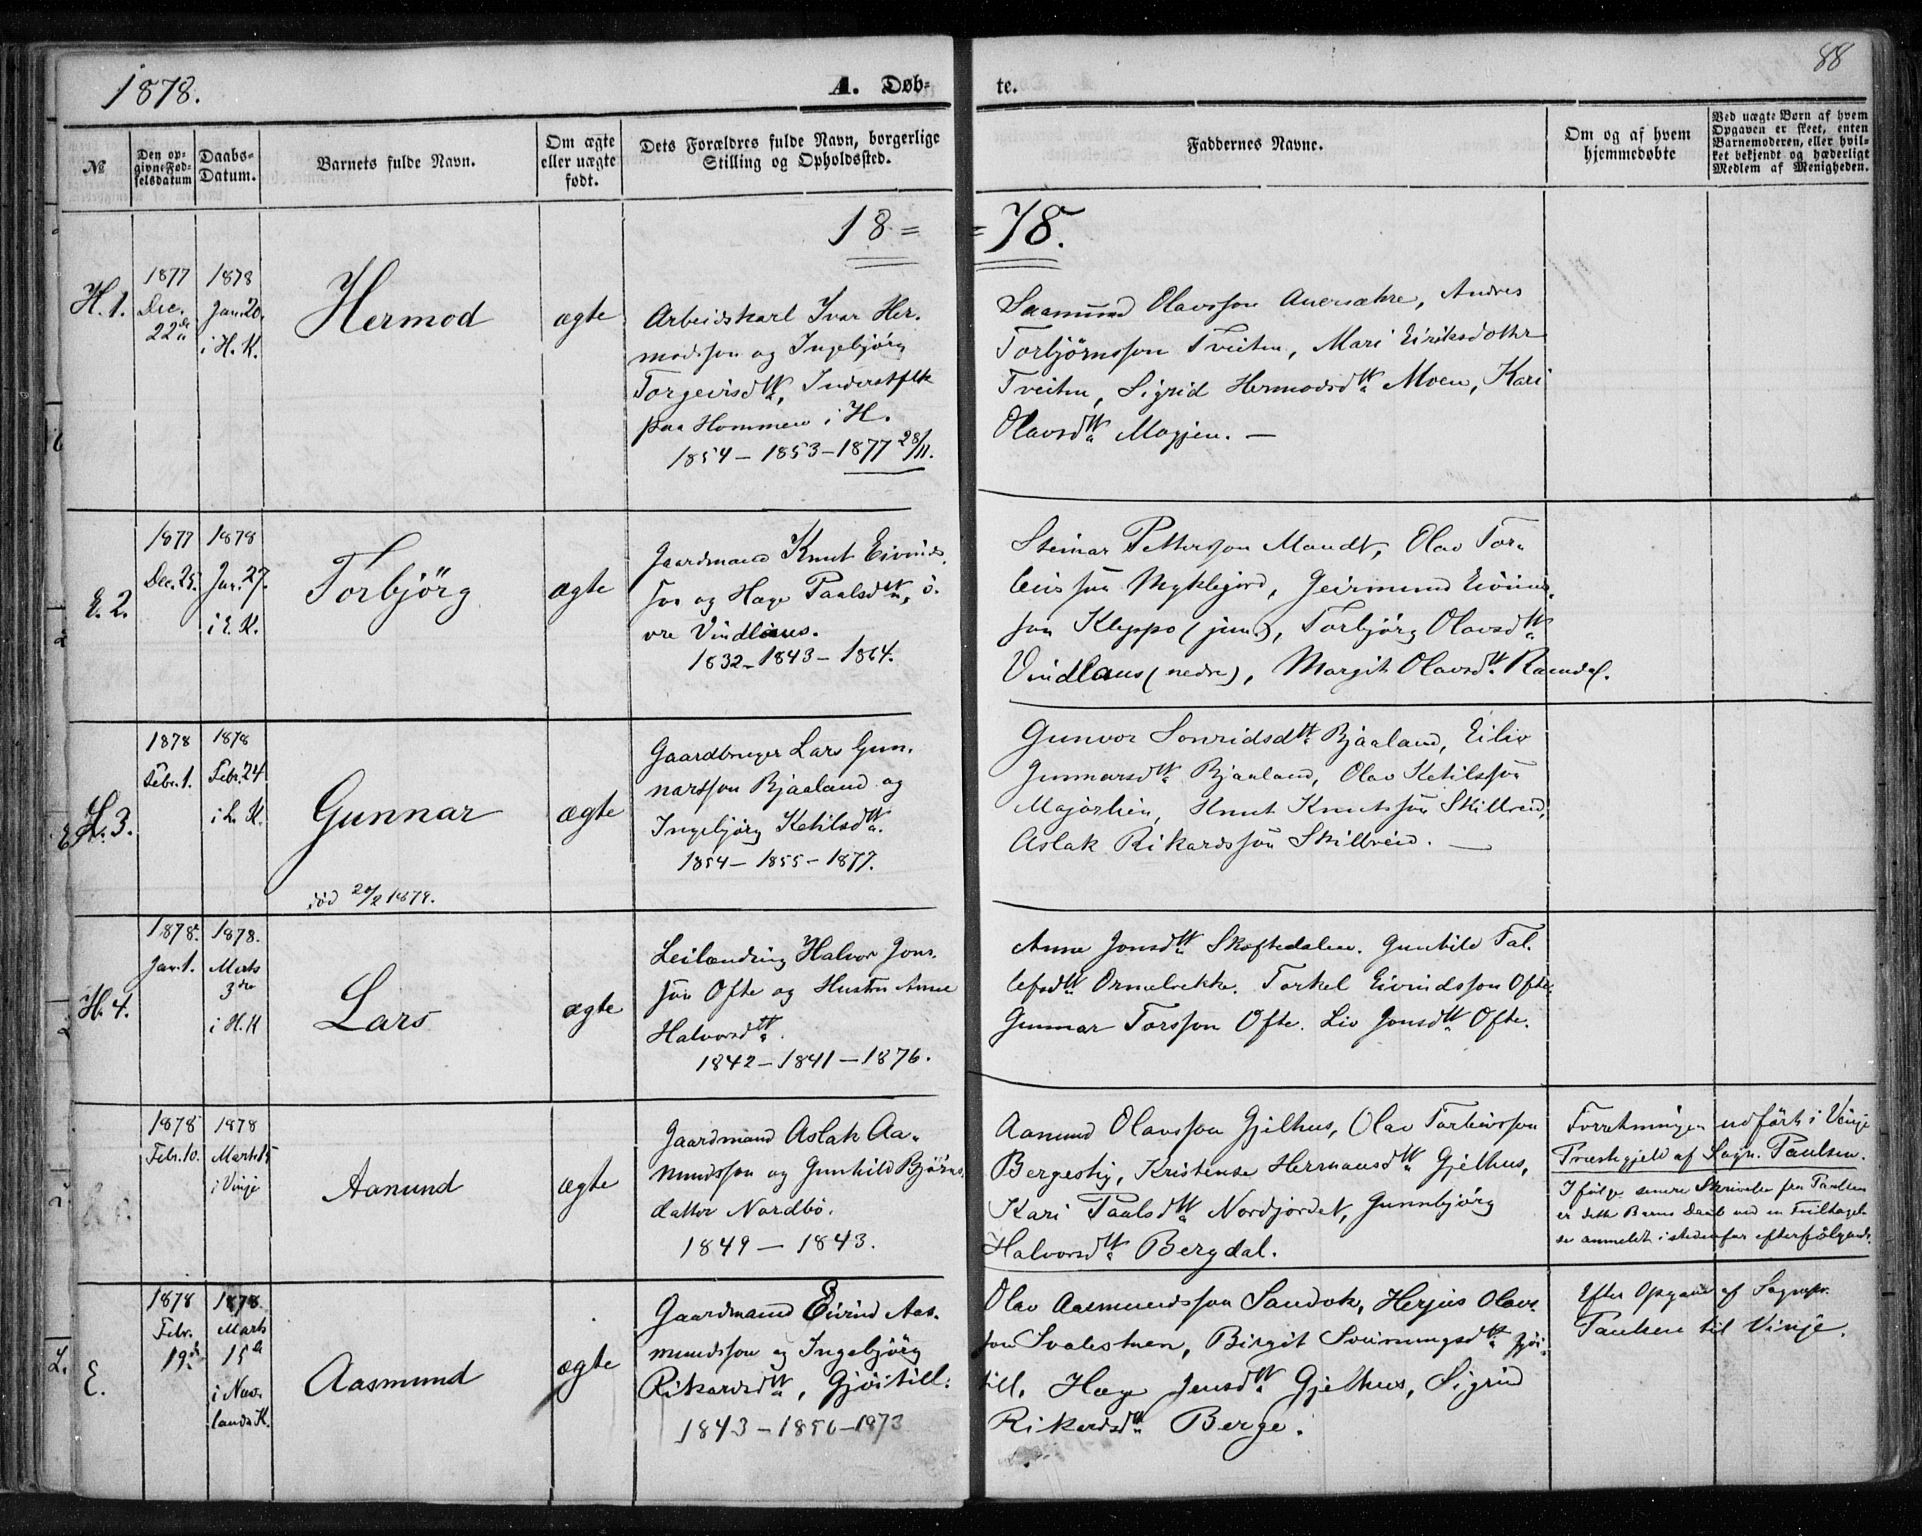 1878.
A. Døb-
te.
88
№
Den op-
givne Fød-
selsdatum
Daabs-
Datum.
Barnets fulde Navn.
Om ægte
eller uægte
født.
Dets Forældres fulde Navn, borgerlige
Stilling og Opholdssted.
Faddernes Navne.
Om og af hvem
hjemmedøbte
Ved uægte Børn af hvem
Opgaven er skeet, enten
Barnemoderen, eller hvil-
ket bekjendt og hæderligt
Medlem af Menigheden.
18 =
= 78.
H. 1.
1877
Dec.
22de
1878
Jan. 20.
i H. K.
Hermod
ægte
Arbeidskarl Ivar Her-
modsson og Ingebjörg
Torgeirsdtr, Inderstfolk
paa Hommen i H.
1854 – 1853 – 1877 28/11.
Saamund Olavsson Aversæhre, Andres
Torbjørnsson Tveiten, Mari Eiriksdotter
Tveiten, Sigrid Hermodsdtr Moen, Kari
Olavsdtr Mogjen. —
E. 2.
1877
Dec. 25.
1878
Jan. 27.
i E. K.
Torbjörg
ægte
Gaardmand Knut Eivinds-
son og Hæge Paalsdtr, ö-
vre Vindlaus.
1832 – 1843 – 1864.
Steinar Petterson Mandt, Olav Tor-
leisson Myklegjord, Geirmund Eivinds-
son Kleppo (jun.), Torbjörg Olavsdtr
Vindlaus (nedre), Margit Olavsdtr Ramdal.
H. 3.
1878
Febr. 1.
1878
Febr. 24
i L. K.
Gunnar
död 20/2 1879.
ægte
Gaardbruger Lars Gun-
narsson Bjaaland og
Ingebjörg Ketilsdtr.
1854 – 1855 – 1877.
Gunvor Sonridsdtr Bjaaland, Eiliv
Gunnarsdtr Bjaaland, Olav Ketilsson
Majorlien, Knut Knutsson Skilbreid,
Aslak Rikardsson Skilbreid. —
H. 4.
1878.
Jan. 1.
1878.
Marts
3die
i H. K
Lars
ægte
Leilænding Halvor Jons-
son Ofte og Hustru Anne
Halvorsdtr.
1842 – 1841 – 1876.
Anne Jonsdtr Skoftedalen. Gunhild Tal-
lefsdtr Ormelrekke. Torkel Eivindsson Ofte.
Gunnar Torsson Ofte. Liv Jonsdtr Ofte.
1878
Febr. 10.
1878
Marts 15
i Vinje
Aanund
ægte
Gaardmand Aslak Aa-
nundsson og Gunhild Bjørns-
datter Nordbö.
1849 – 1843.
Aanund Olavsson Gjelhus, Olav Torleivsson
Bergestig, Kristense Hermansdtr Gjelhus,
Kari Paalsdtr Nordjordet, Gunnbjörg
Halvorsdtr Bergdal.
Forretningen udført i Vinje
Præstegjeld af Sogn. Paulsen.
Ifölge senere Skrivelse fra Paulsen
er dette Barns Daab ved en Feiltagel-
se anmeldt istedenfor efterfølgende.
E.
1878
Febr.
19de
1878
Marts
15de
i Nes-
landa K.
Aasmund
ægte
Gaardmand Eivind Aas-
mundsson og Ingebjörg
Rikardsdtr, Gjöitill.
1843 – 1850 – 1873
Olav Aasmundsson Sandok, Herjus Olavs-
son Svalestuen, Birgit Sveinungsdtr Gjöi-
till, Hæge Jensdtr Gjelhus, Sigrid
Rikardsdtr Berge.
Efter Opgave af Sognepr.
Paulsen til Vinje.